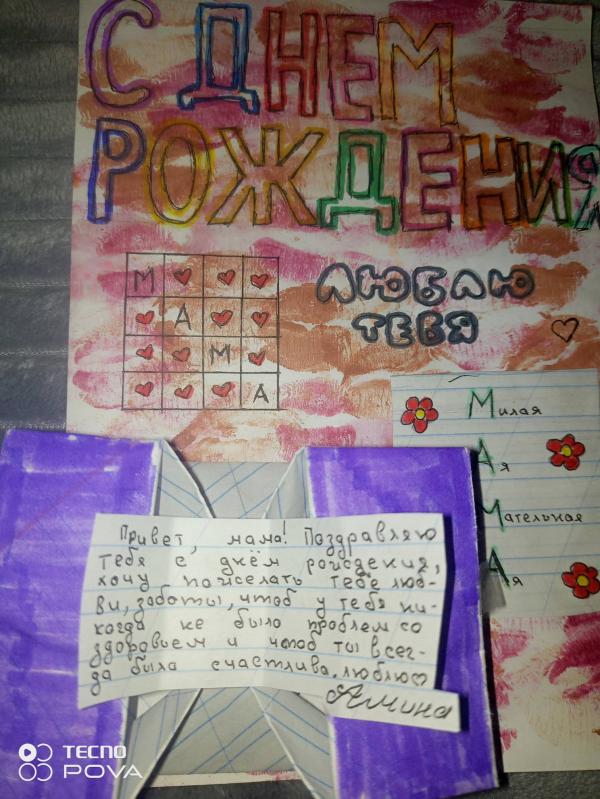 С ДНЕМ
РОЖДЕНИЯ
М
А
М
А
ЛЮБЛЮ
ТЕБЯ
Милая
Ая
Мательная
Ая
Привет, мама! Поздравляю
тебя с днём рождения,
хочу пожелать тебе люб-
ви, заботы, чтоб у тебя ни-
когда не было проблем со
здоровьем и чтоб ты всег-
да была счастлива, люблю
Амина
TECNO
POVA